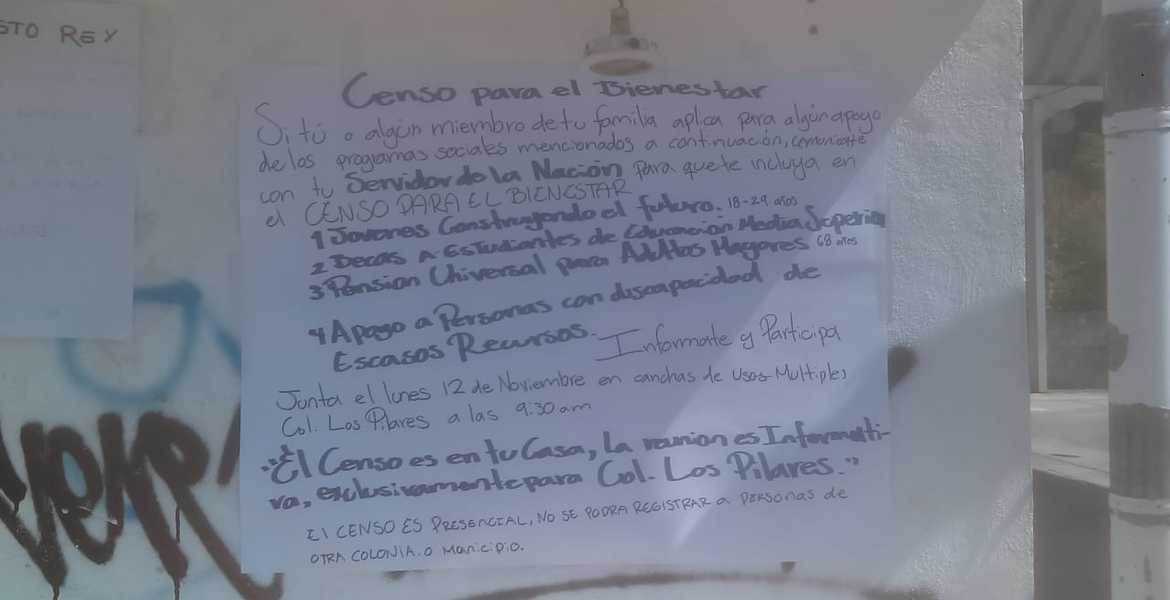 STO REY
Censo para el Bienestar
Si tú o algún miembro de tu familia aplica para algún apoyo
de los programas sociales mencionados a continuación, comunicate
con tu Servidor de la Nación para que te incluya en
el CENSO PARA EL BIENESTAR
1 Jovenes Construyendo el futuro. 18-29 años
2 Becas A Estudiantes de Educación Media Superior
3 Pension Universal para Adultos Mayores 68 años
4 Apoyo a Personas con discapacidad de
Escasos Recursos.
Informate y Participa
Junta el lunes 12 de Noviembre en canchas de Usos Multiples
Col. Los Pilares a las 9:30 am
"El Censo es en tu Casa, La reunion es Informati-
va, exclusivamente para Col. Los Pilares."
El CENSO ES PRESENCIAL, NO SE PODRA REGISTRAR a PERSONAS de
OTRA COLONIA O Municipio.